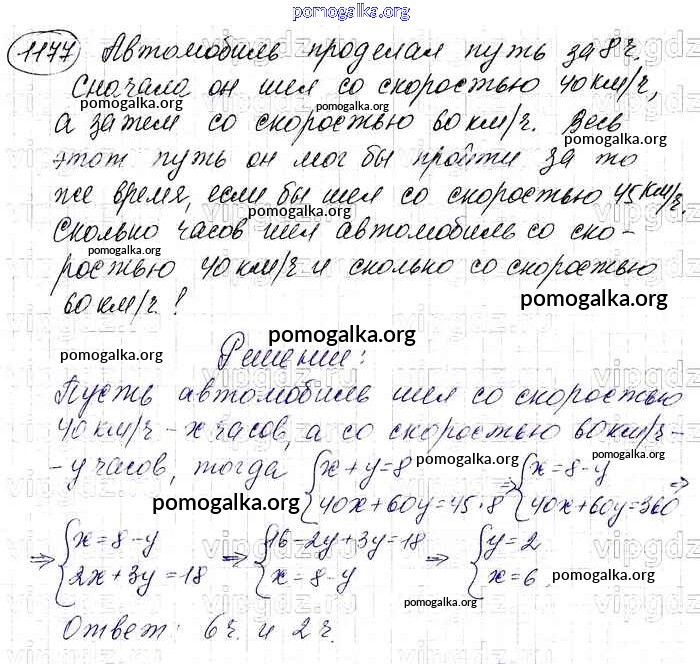 pomogalka.org
1177 Автомобиль проделал путь за 8 ч.
Сначала он шел со скоростью 40 км/ч,
pomogalka.org pomogalka.org
а затем со скоростью 60 км/ч. Весь
pomogalka.org
этот путь он мог бы пройти за то
же время, если бы шел со скоростью 45 км/ч.
pomogalka.org
Сколько часов шел автомобиль со ско-
pomogalka.org
ростью 40 км/ч и сколько со скоростью
60 км/ч?
pomogalka.org
pomogalka.org
pomogalka.org Решение:
Пусть автомобиль шел со скоростью
40 км/ч - x часов, а со скоростью 60 км/ч -
- y часов, тогда { x + y = 8 ⇒ { x = 8 - y ⇒
pomogalka.org
pomogalka.org { 40x + 60y = 45 · 8 { 40x + 60y = 360
⇒ { x = 8 - y ⇒ { 16 - 2y + 3y = 18 ⇒ { y = 2
{ 2x + 3y = 18 { x = 8 - y { x = 6
pomogalka.org
pomogalka.org pomogalka.org
Ответ: 6 ч. и 2 ч.